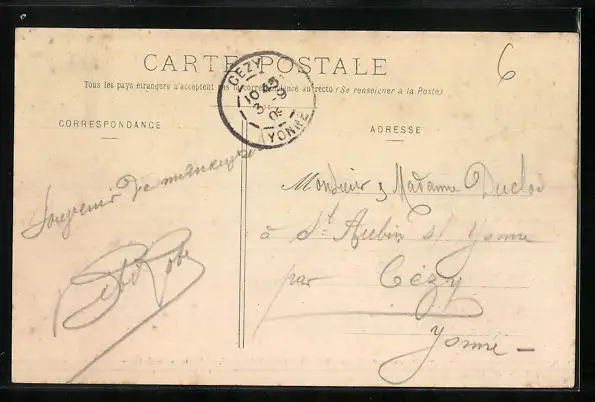 6
CARTE POSTALE
Tous les pays étrangers n'acceptent pas la correspondance au recto (Se renseigner à la Poste)
CÉZY
10 45
3 - 9
YONNE
CORRESPONDANCE
ADRESSE
Souvenir de
Monsieur & Madame Duclos
à St Aubin s/ Yonne
par Cézy
Yonne